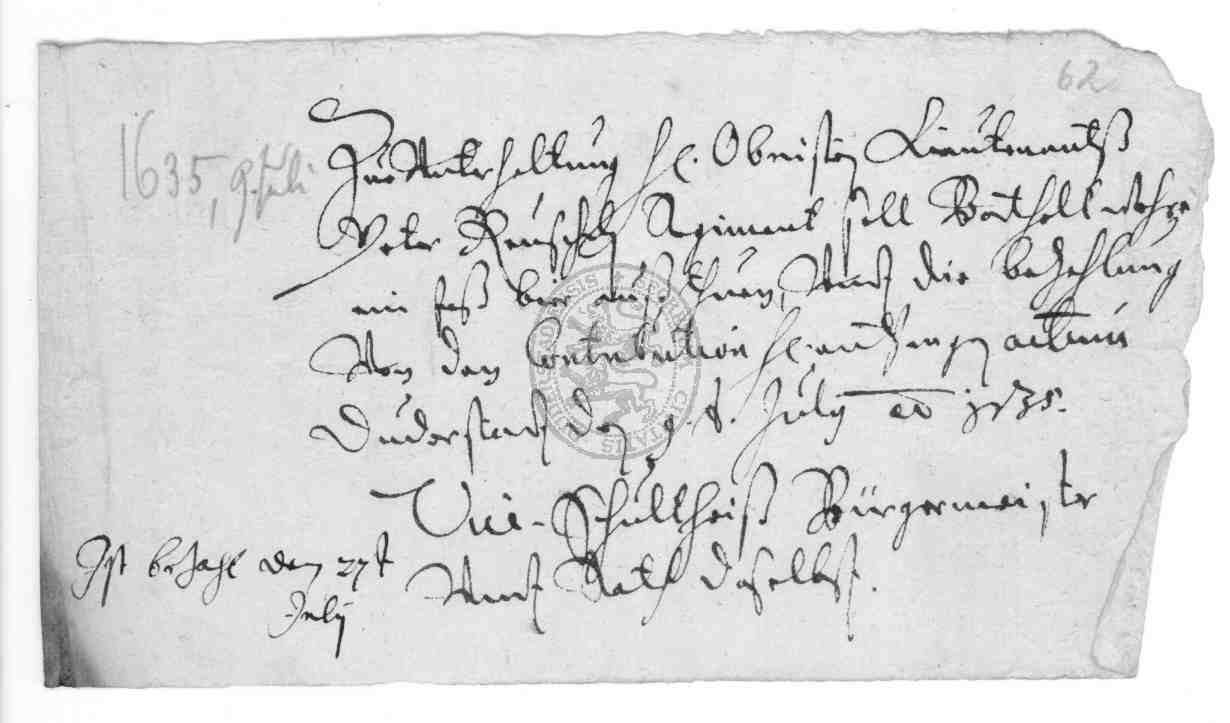 62
1635, 9. Juli
Zue Unterhaltung H. Obristen Lieutenantß
Peter Reuschen Regiment soll Barthell
ein faß bier auß thuen, Undt die bezahlung
Von den Contribution H. actum
Duderstadt den 9. t. July ao 1635.
Vice-Schultheiß Bürgermeister
Undt Rath daselbst.
Ist bezahlt den 27t
July